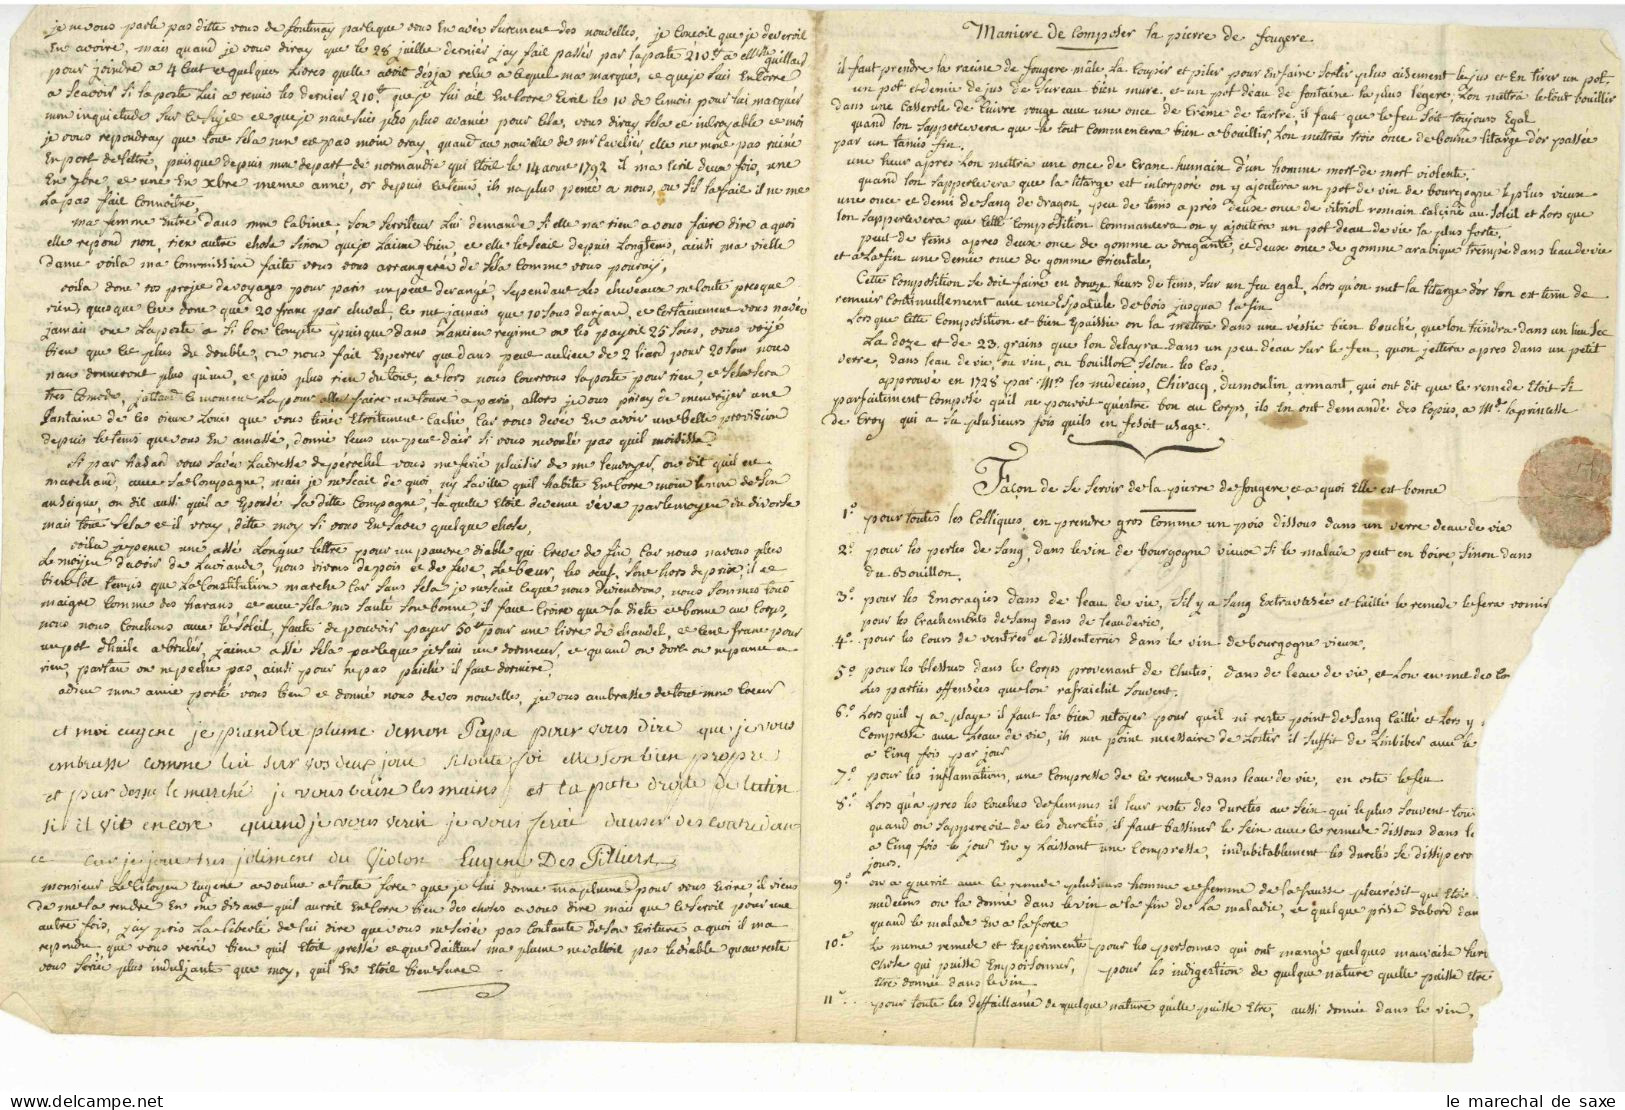 je ne vous parle pas ditte vous de fontenay parceque vous En avés surement des nouvelles, je conçoit que je deveroit
En avoire, mais quand je vous diray que le 28 juillet dernier jay fait passés par la poste 210tt a elle guillard
pour joindre a 4 Cent et quelques Livres quelle avoit desja relu a lequel ma marque, et que je lui Encorre
a scavoir si la poste Lui a remis les dernier 210tt que je lui ait Encorre Ecrit le 10 de Cemois pour lui marquer
mon inquietude sur ce sujet et que je nan suis pas plus avancé pour Cela, vous diray Cela et incroyable et moi
je vous repondray que tout Cela nen et pas moin vray, quand au nouvelle de mr Cavelier, elle ne mone pas ruiné
En port de lettre, puisque depuis mon depart de normandie qui Etoit le 14 aout 1792 il ma Ecrit deux fois, une
En 7bre, et une En Xbre meme anné, or depuis Ce tems, il na plus pencé a nous, ou Sil la fait il ne me
La pas fait Connoitre,
ma femme Entre dans mon Cabinet, Son Serviteur Lui demande Si elle na rien a vous faire dire a quoi
elle repond non, rien autre chose Sinon que je Laime bien, et elle le Scait depuis Longtems, ainsi ma vielle
dame voila ma Commission faite vous vous arrangerée de Cela Comme vous pouray,
voila donc nos projet de voyages pour paris un peut derangé, Cependant Les chevaux ne Coute presque
rien, quoique Lon donne que 20 franc par cheval, Ce net jamais que 10 Sous darjan, et Certainement vous navée
jamais vue La poste a Si bon Compte puisque dans Lancien regime on les payoit 25 Sous, vous voyé
bien que Cet plus du double, on nous fait Esperrer que dans peut aulieu de 2 liard pour 20 Sous nous
nan donneront plus qu'un, et puis plus rien du tout, alors nous Courrons la poste pour rien, et Cela sera
tres Comode, jattand Ce moment La pour aller faire un tour a paris, allors je vous priray de menvoyer une
fantaine de Ces vieux Louis que vous tenée Etroitement Caché, Car vous devée En avoir une belle provision
depuis le tems que vous En amassé, donné leurs un peut dair Si vous ne voulé pas quil moisisse.
Si par hazard vous Savée Ladresse de pérochel vous me feriée plaisir de me Lenvoyer, on dit quil et
marchand, avec sa Compagne, mais je ne Scait de quoi, ny la ville quil habite Encorre moin le nom de Son
anseigne, on dit aussi quil a Epousé Sa ditte Compagne, la quelle Etoit devenue veve par le moyen du divorse
mais tout Cela et il vray, dite moy Si vous En Savée quelque chose,
voila je pence une assé Longue lettre pour un pauvre diable qui Creve de fin, Car nous navons plus
Le moyen d'avoir de La viande, nous vivons de pois et de feve, Le beur, les oeuf, Sont hors de prix, il et
bientot temps que La Constitution marche Car Sans Cela je ne Scait ce que nous deviendrons, nous Sommes tous
maigre Comme des harans et avec Cela ma Santé Son bonne, il faut Croire que la diete et bonne au Corps,
nous nous Couchons avec le Soleil, faute de pouvoir payer 50tt pour une livre de chandel, et Cent franc pour
un pot d'huile a bruler, jaime assé Cela parceque je Suis un dormeur, et quand on dort on ne pance a
rien, partan on ne peche pas, ainsi pour ne pas pecher il faut dormire.
adieu mon amie porté vous bien et donné nous de vos nouvelles, je vous ambrasse de tout mon Coeur
et moi eugene je prand la plume demon Papa pour vous dire que je vous
embrasse comme lui sur vos deux joue si toute foi elle son bien propre
et par dessu le marché je vous baise les mains et la pate droite de lutin
si il vit encore quand je vous verai je vous ferai danser des contredan
ce car je joue tres joliment du Violon Eugene Des Tilliers
monsieur Le Citoyen Eugene a voulue a toute force que je lui donne ma plume pour vous Ecrire, il viens
de me la rendre En me disant quil auroit Encorre bien des choses a vous dire mais que Ce Seroit pour une
autre fois, jay pris La liberté de lui dire que vous ne Seriée pas Contante de Son Ecriture a quoi il ma
repondu que vous veriée bien quil Etoit pressé et que dailleur ma plume ne valloit pas le diable qu'au reste
vous Seriée plus induljant que moy, quil En Etoit bien Sure
Maniere de Composer la pierre de fougere
il faut prendre la racine de fougere mâle la Couper et piler pour En faire Sortir plus aisement le jus et En tirer un pot.
un pot et demie de jus de Sureau bien mure, et un pot deau de fontaine la plus legere, Lon mettra le tout bouillir
dans une Casserole de Cuivre rouge avec une once de Crême de tartre, il faut que le feu Soit toujours Egal
quand lon Sappercevera que le tout Commencera bien a bouillir, Lon mettra trois once de bonne litarge d'or passée
par un tamis fin.
une heur apres Lon mettra une once de Crane humain d'un homme mort de mort violente,
quand lon Sappercevera que la litarge est incorporé on y ajoutera un pot de vin de bourgogne le plus vieux
une once et demi de Sang de dragon, peu de tems après deux once de vitriol romain Calciné au Soleil et Lors que
lon Sappercevera que Cette Composition Commencera on y ajoutera un pot deau de vie la plus forte.
peut de tems apres deux once de gomme adragante, et deux once de gomme arabique trempé dans leau de vie
et a La fin une demie once de gomme Orientale,
Cette Composition Se doit faire en douze heurs de tems, Sur un feu egal, Lors qu'on met la litarge d'or lon est tenu de
remuer Continuellement avec une Espatule de bois jusqua la fin
Lors que Cette Composition et bien Epaissie on la mettra dans une vessie bien bouché, que lon tiendra dans un lieu Sec
La doze et de 23 grains que lon delayra dans un peu d'eau sur le feu, quon jettera apres dans un petit
verre, dans leau de vie, ou vin, ou bouillon Selon les Cas.
approuvé en 1728 par Mrs les medecins, Chiracq, dumoulin, armant, qui ont dit que le remede Etoit Si
parfaitement Composé qu'il ne pouvoit qu'estre bon au Corps, ils En ont demandé des Copies, a Mde la princesse
de Croy qui a Su plusieurs fois quils en fesoit usage.
Façon de Se Servir de la pierre de fougere et a quoi Elle est bonne
1º pour toutes les Colliques, en prendre gros Comme un pois dissous dans un verre deau de vie
2º pour les pertes de Sang, dans le vin de bourgogne vieux Si le malade peut en boire, Sinon dans
du Bouillon.
3º pour les Emoragies dans de leau de vie, S'il y a Sang Extravasée et Caillé le remede le fera vomir
pour les Crachements de Sang dans de leau de vie,
4º pour les Cours de ventres et dissenterie dans le vin de bourgogne vieux,
5º pour les blessures dans le Corps provenant de Chutes, dans de leau de vie, et Lon en met des Co
Les parties offensées que lon rafraichit Souvent.
6º Lors quil y a playe il faut la bien netoyer pour quil ni reste point de Sang Caillé et Lors y
Compresse avec Leau de vie, ils nee point necessaire de Loster il Suffit de Limbiber avec le
a Cinq fois par jour
7º pour les inflamations, une Compresse de Ce remede dans leau de vie, en oste le feu
8º Lors qu'a pres les Couches de femmes il leur reste des duretés au Sein qui le plus Souvent tou
quand on Sappercoit de Ces duretés, il faut bassiner le Sein avec le remede dissous dans le
a Cinq fois le jour En y Laissant une Compresse, indubitablement les duretés Se dissipero
jours.
9º on a guerit avec Ce remede plusieurs homme et femme de la fausse pleuresie que Etoi
medecins on la donné dans le vin a la fin de La maladie, et quelque prise dabord dan
quand le malade En a la force
10º Le meme remede et Experimenté pour les personnes qui ont mangé quelques mauvaise her
Chose qui puisse Empoisonner, pour les indigestion de quelque nature quelle puisse Etre
Etre donnée dans le vin
11º pour toute les deffaillance de quelque nature qu'elle puisse Etre, aussi donnée dans le vin,
le marechal de saxe